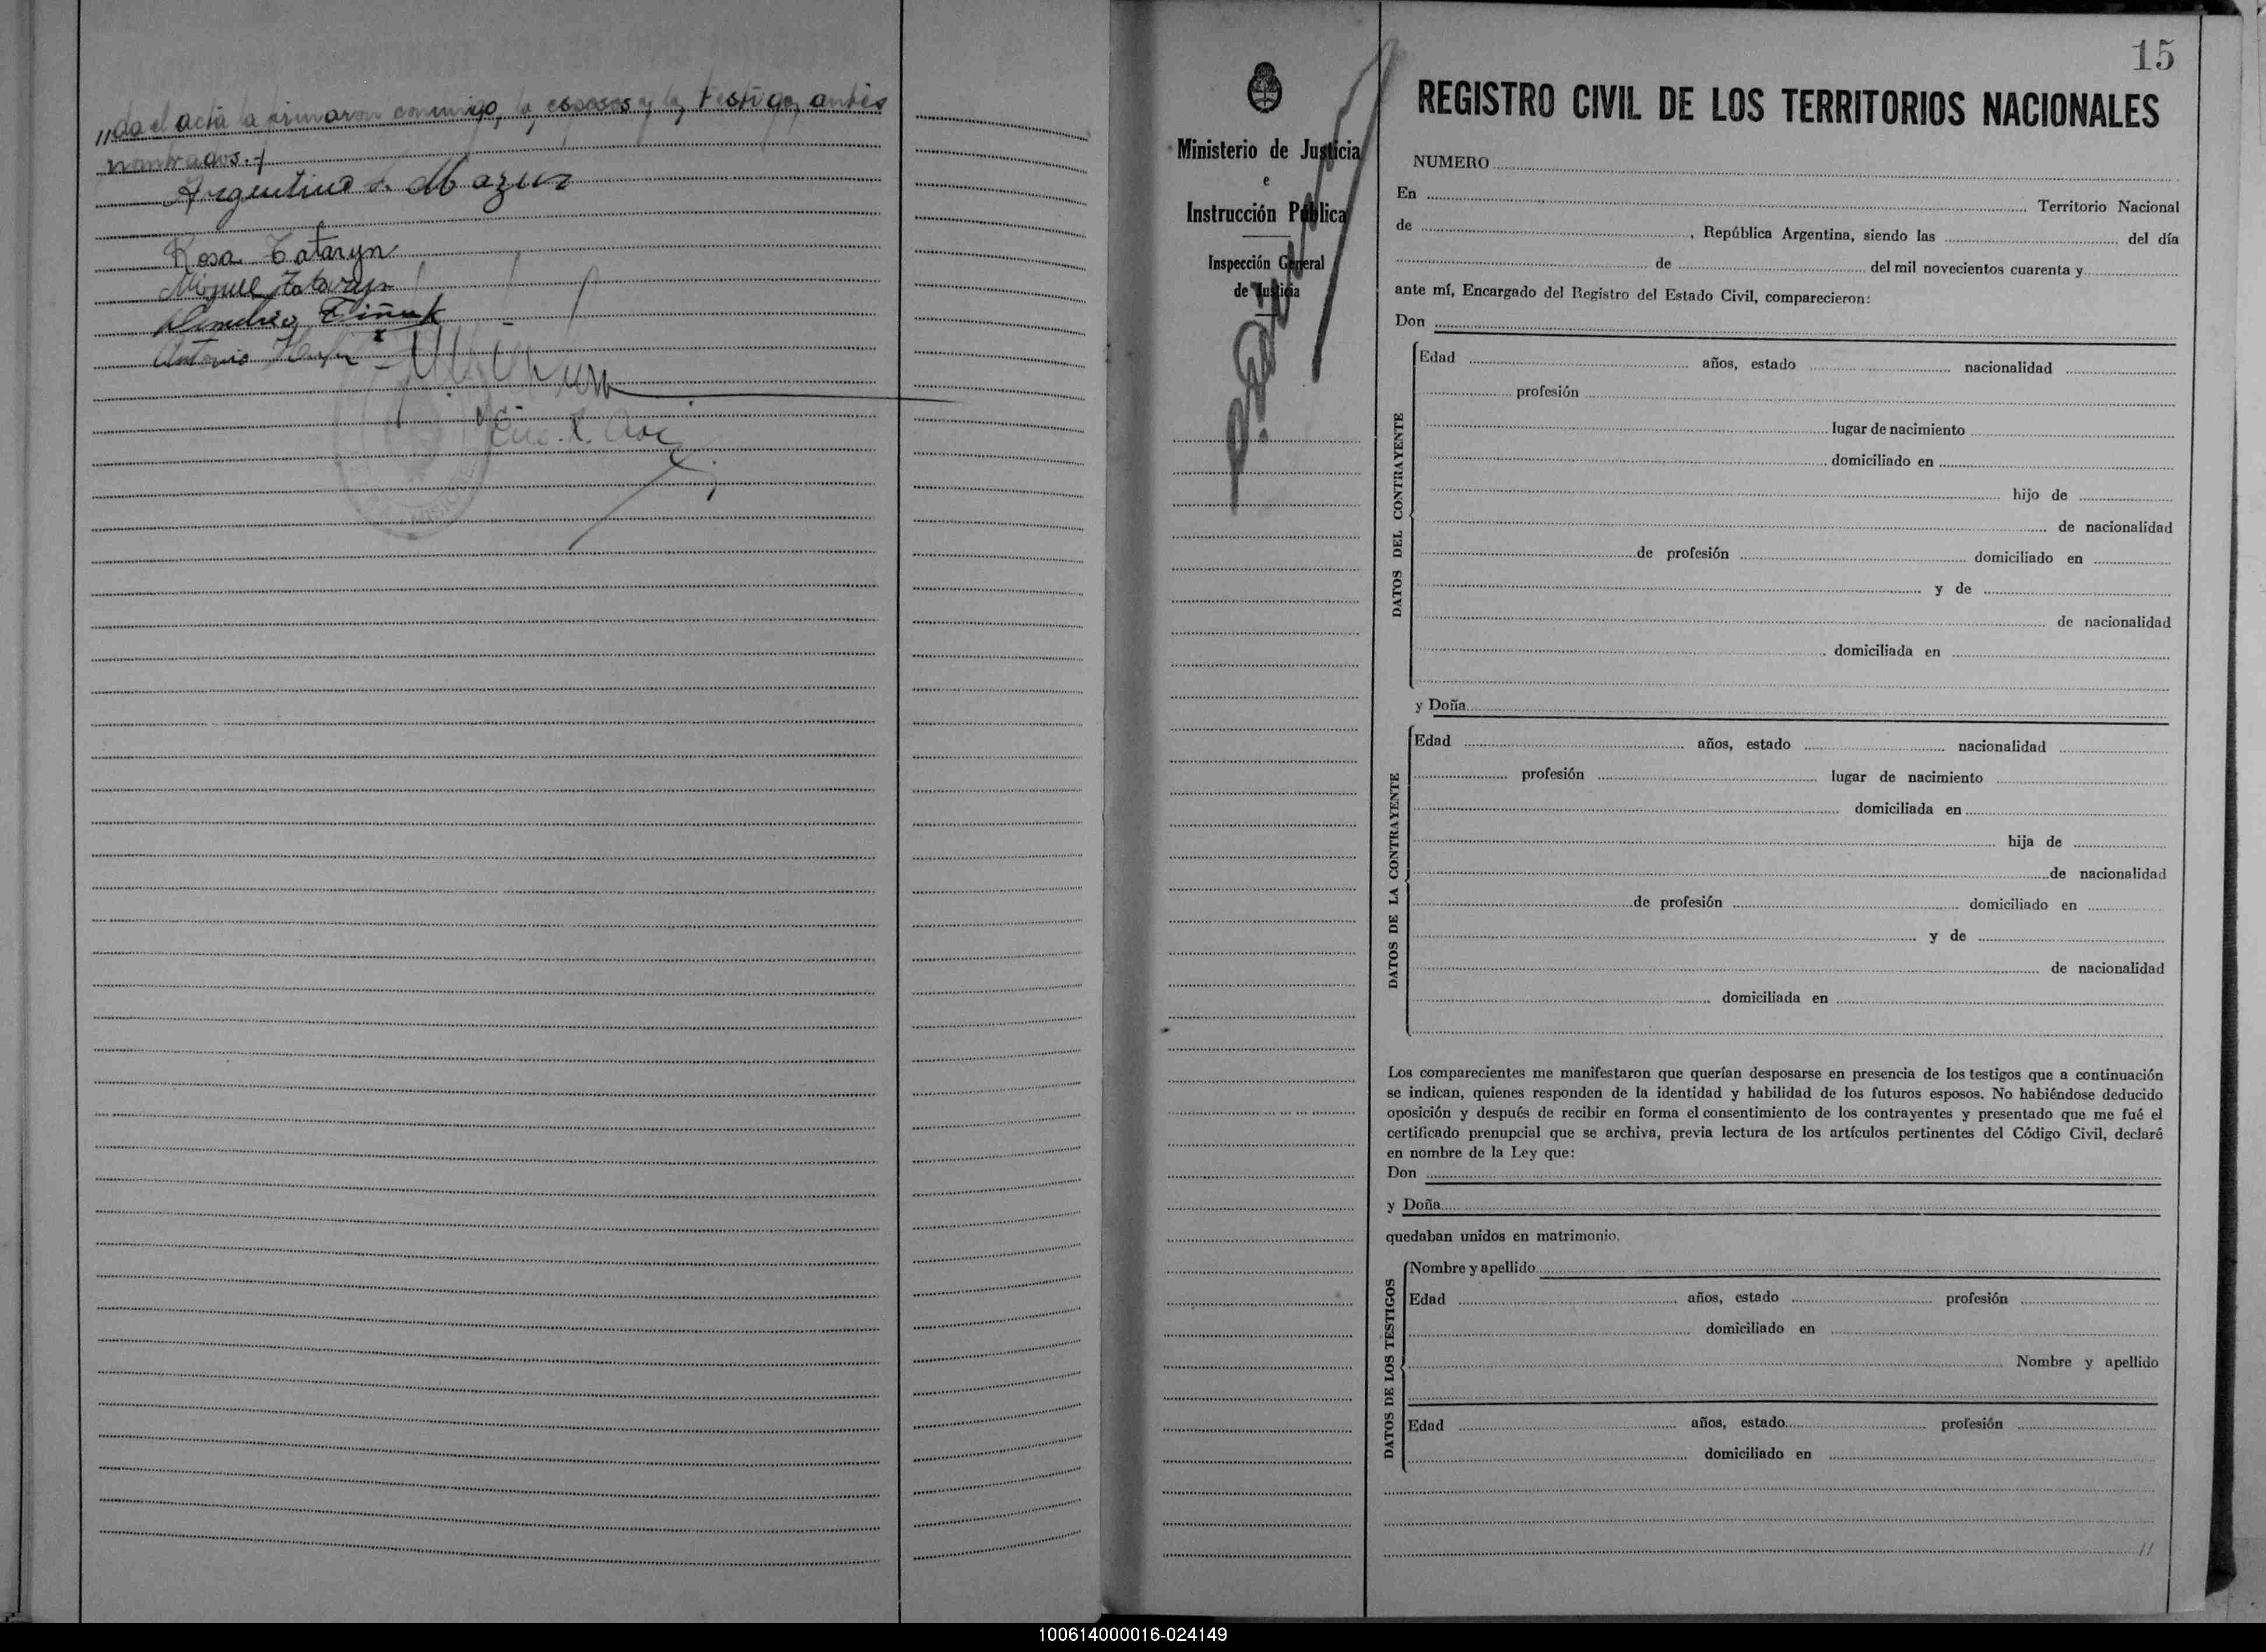 da el acta la firmaron conmigo, los esposos y los testigos antes
nombrados.-
Argentino S. Mazur
Rosa Tataryn
Miguel Tataryn
Demetrio
Antonio
15
Ministerio de Justicia
e
Instrucción Pública
Inspección General
de Justicia
REGISTRO CIVIL DE LOS TERRITORIOS NACIONALES
NUMERO
En Territorio Nacional
de , República Argentina, siendo las del día
de del mil novecientos cuarenta y
ante mí, Encargado del Registro del Estado Civil, comparecieron:
Don
DATOS DEL CONTRAYENTE
Edad años, estado nacionalidad
profesión
lugar de nacimiento
domiciliado en
hijo de
de nacionalidad
de profesión domiciliado en
y de
de nacionalidad
domiciliada en
y Doña
DATOS DE LA CONTRAYENTE
Edad años, estado nacionalidad
profesión lugar de nacimiento
domiciliada en
hija de
de nacionalidad
de profesión domiciliado en
y de
de nacionalidad
domiciliada en
Los comparecientes me manifestaron que querían desposarse en presencia de los testigos que a continuación
se indican, quienes responden de la identidad y habilidad de los futuros esposos. No habiéndose deducido
oposición y después de recibir en forma el consentimiento de los contrayentes y presentado que me fué el
certificado prenupcial que se archiva, previa lectura de los artículos pertinentes del Código Civil, declaré
en nombre de la Ley que:
Don
y Doña
quedaban unidos en matrimonio.
DATOS DE LOS TESTIGOS
Nombre y apellido
Edad años, estado profesión
domiciliado en
Nombre y apellido
Edad años, estado profesión
domiciliado en
100614000016-024149